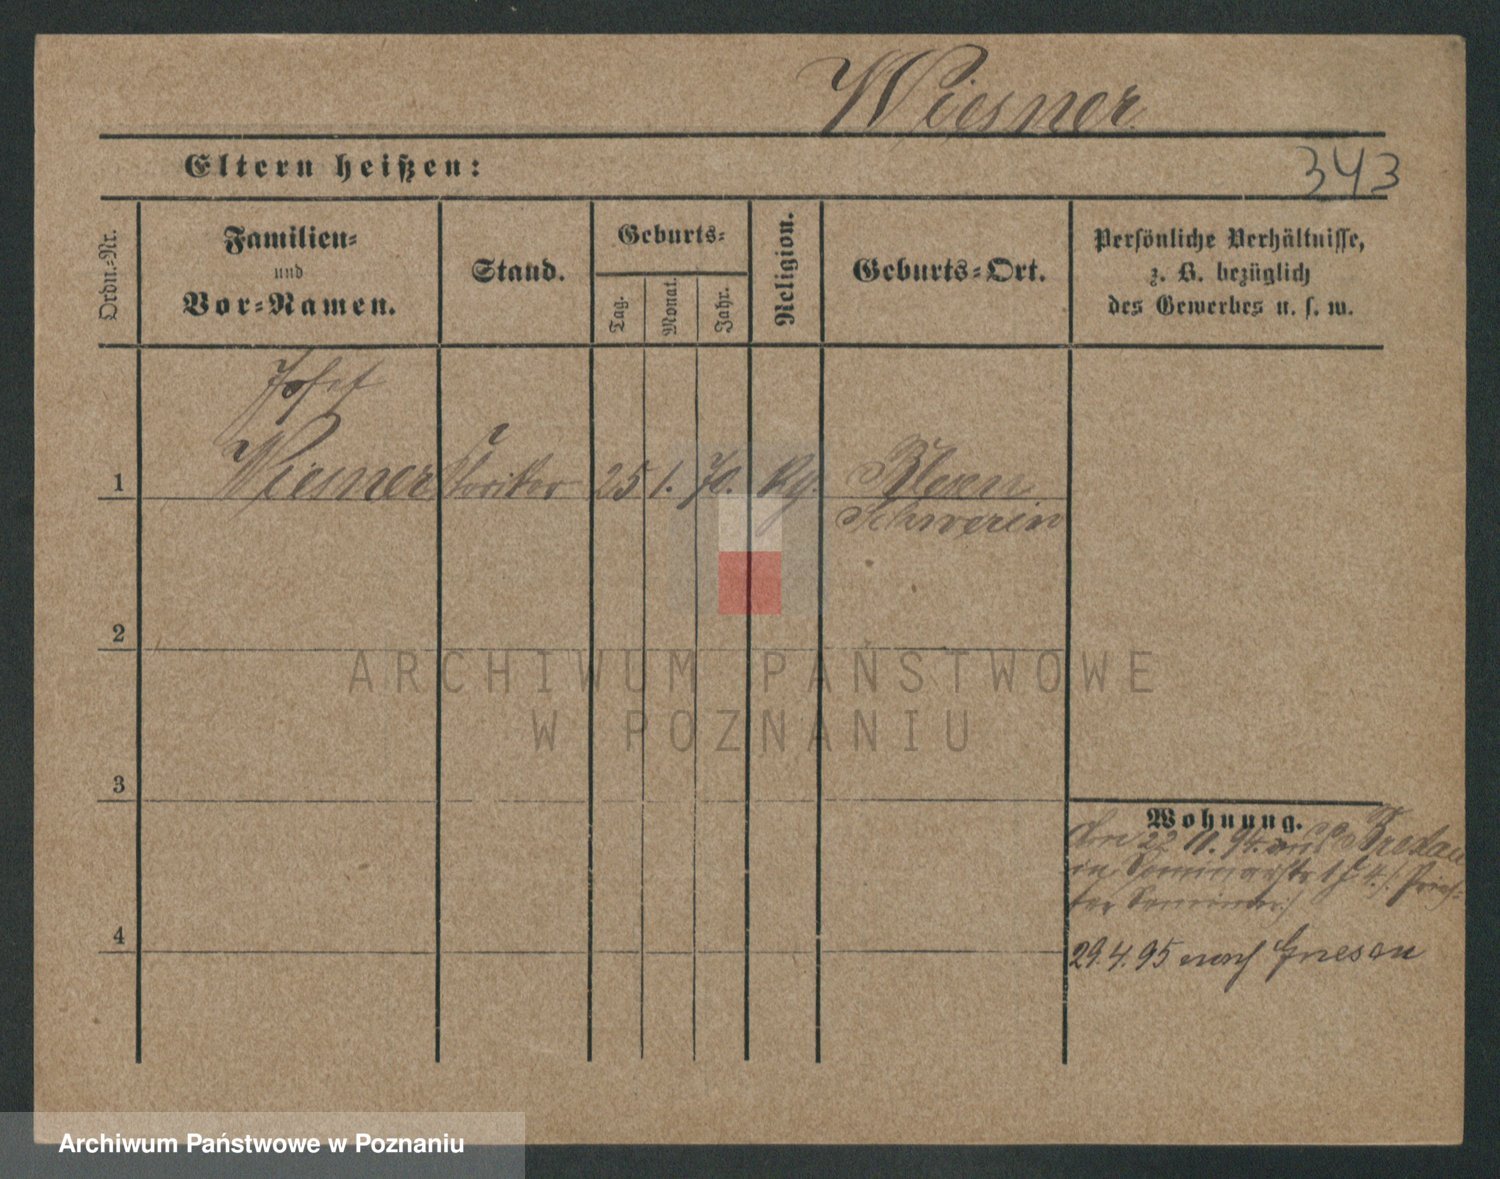 Wiesner
343
Eltern heißen:
Ordn.-Nr.
Familien-
und
Vor-Namen.
Stand.
Geburts-
Tag.
Monat.
Jahr.
Religion.
Geburts-Ort.
Persönliche Verhältnisse,
z. B. bezüglich
des Gewerbes u. s. w.
Josef
1 Wiesner 25 1. 70. Blesen
Schwerin
2
3
Wohnung.
22 11. 94. aus
in Seminarstr
ter Seminar
4
29.4.95 nach Gnesen
ARCHIWUM PAŃSTWOWE
W POZNANIU
Archiwum Państwowe w Poznaniu